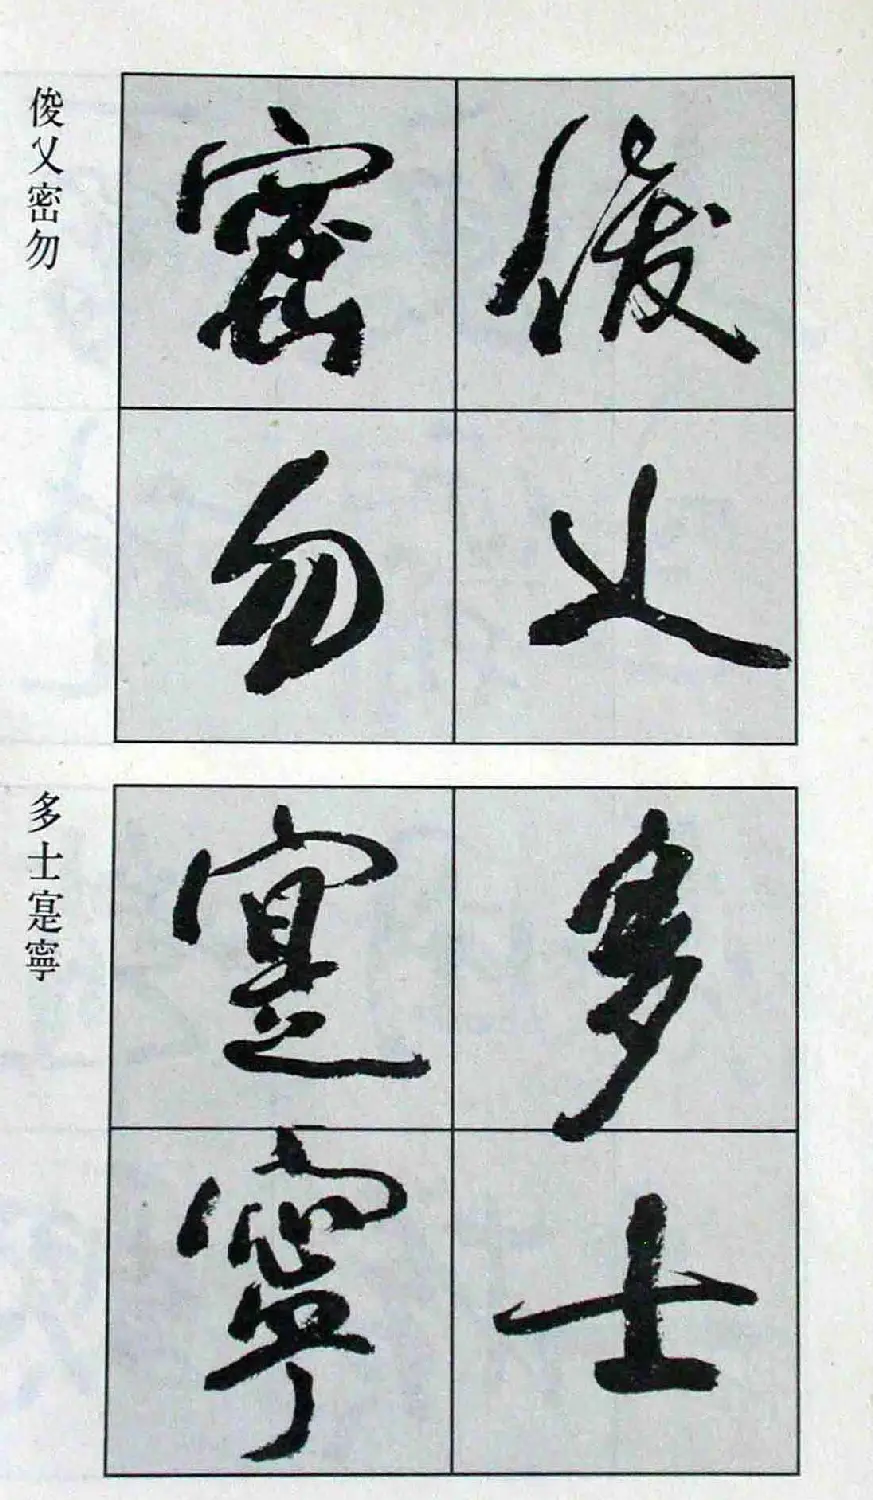 俊乂密勿
俊乂
密勿
多士寔寧
多士
寔寧